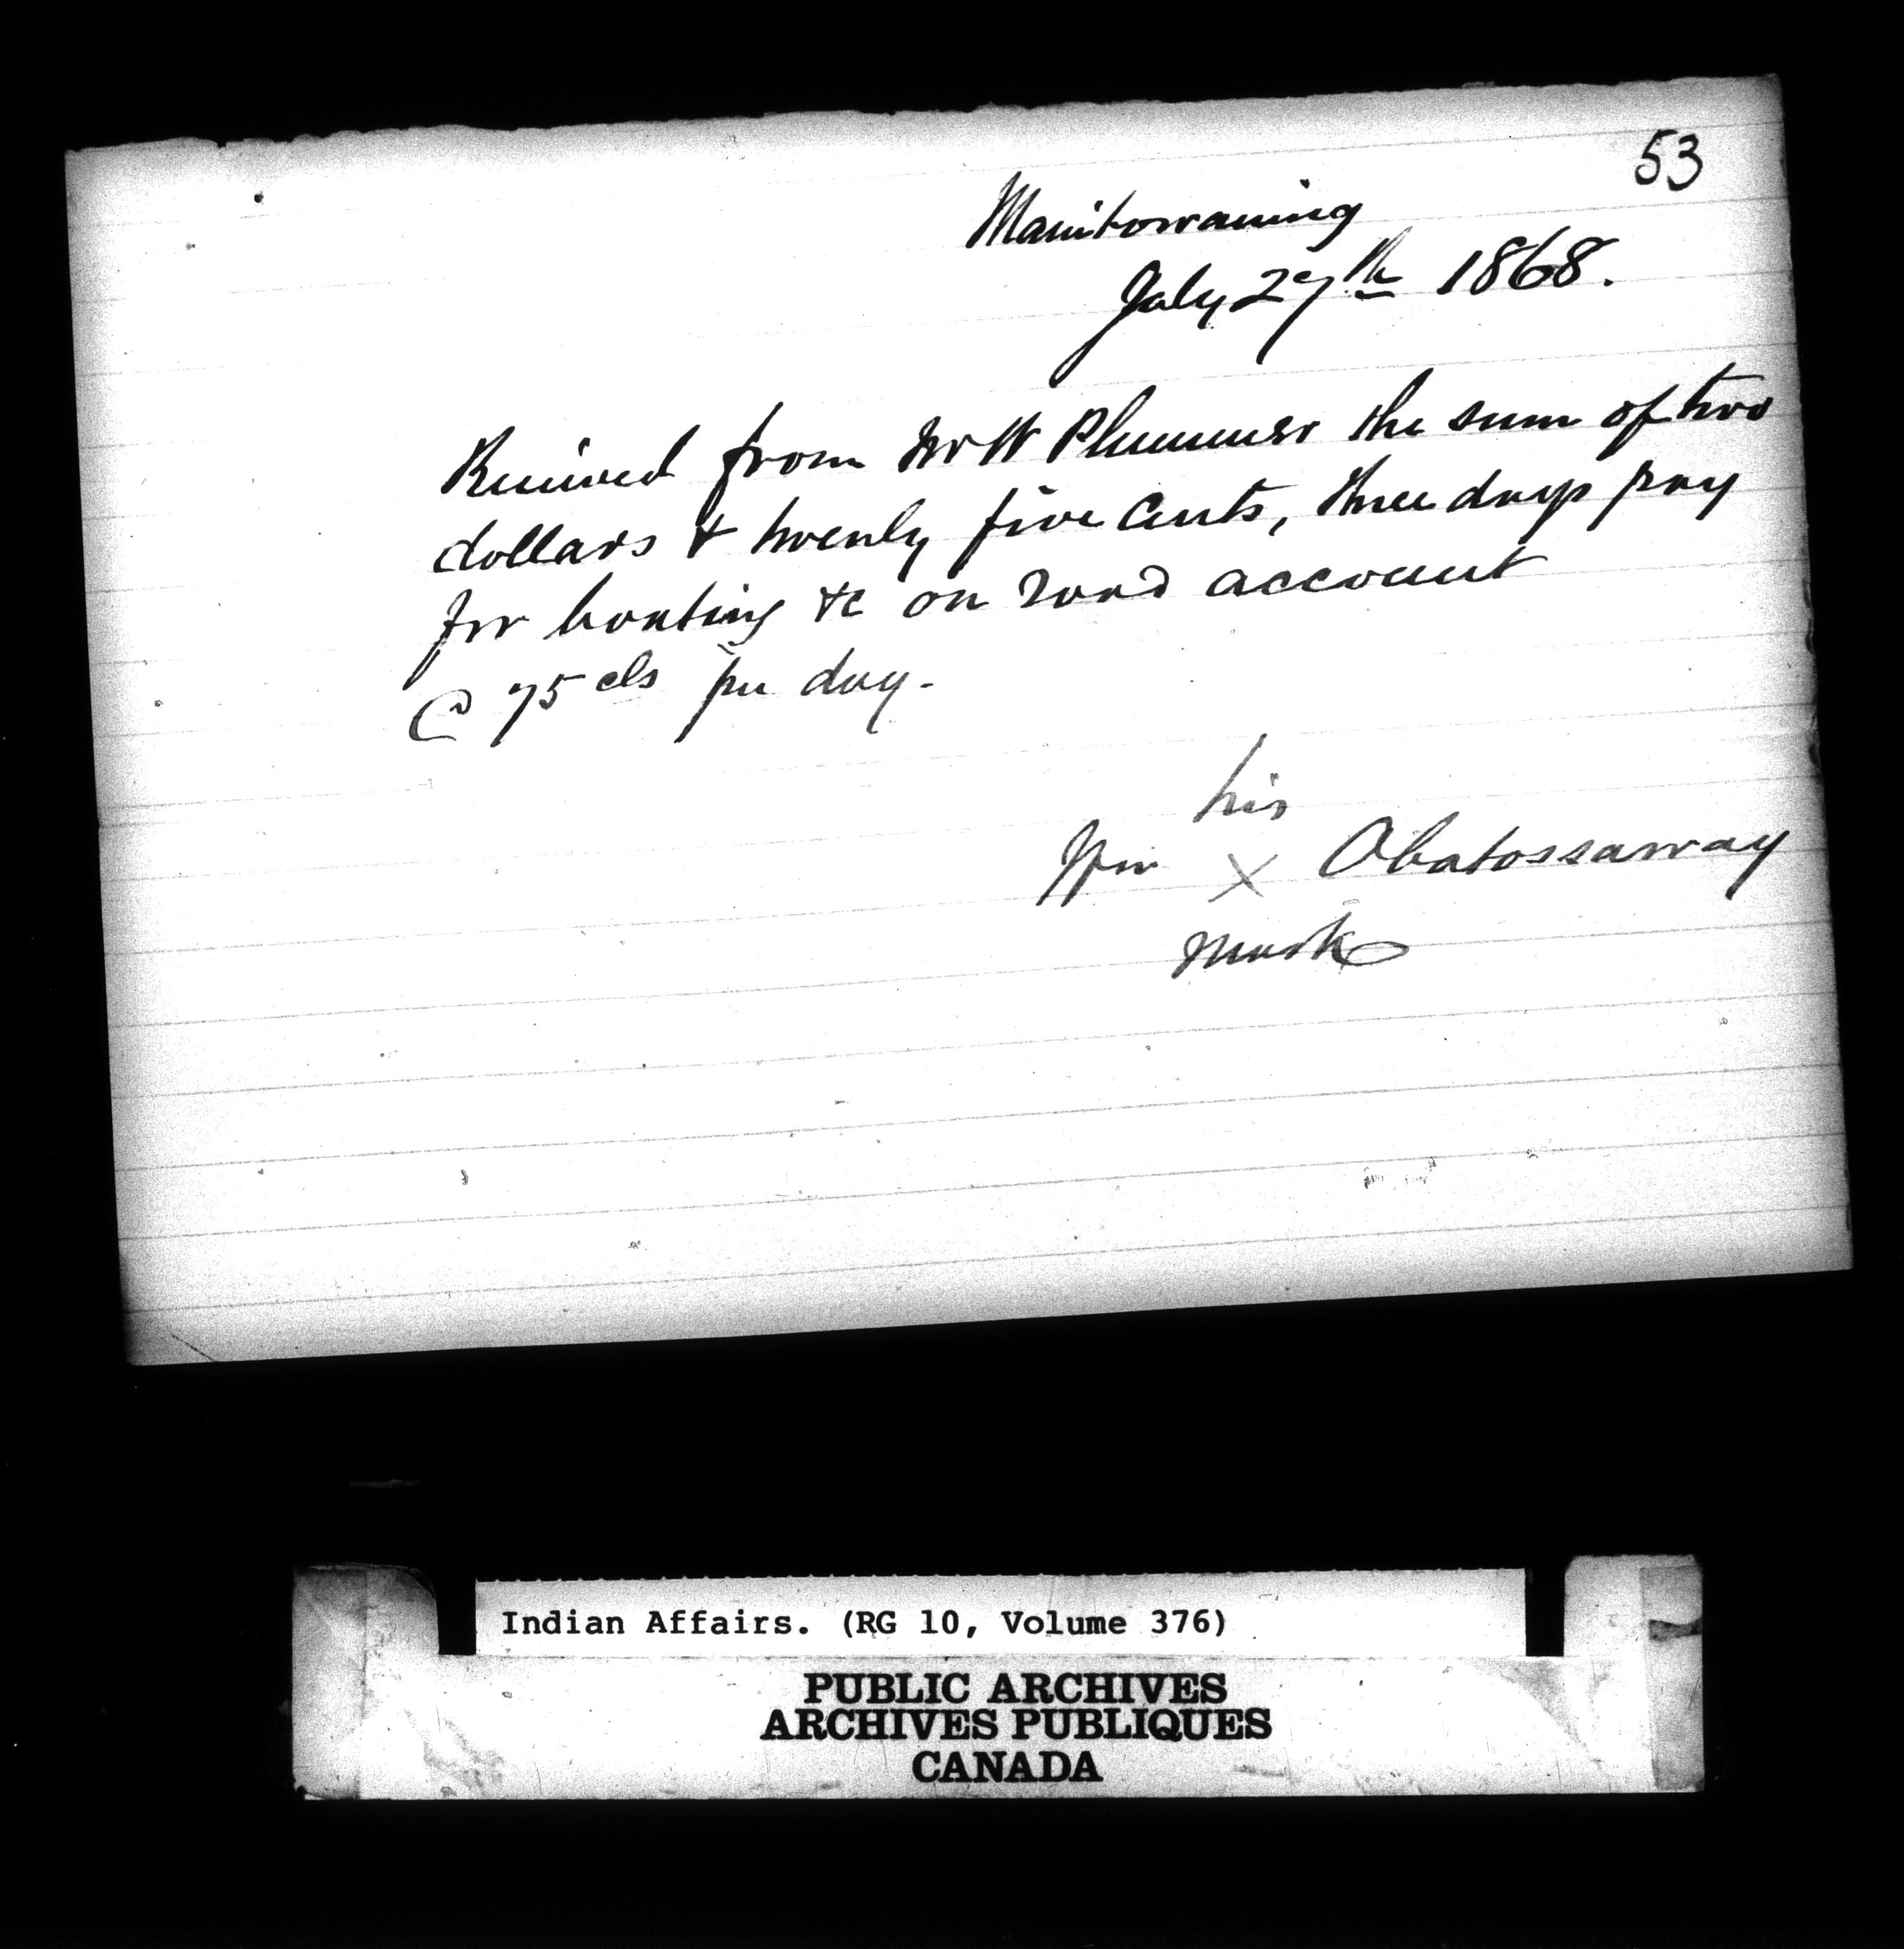 53
Manitowaning
July 27th 1868.
Received from Mr W Plummer the sum of two
dollars & twenty five cents, three days pay
for boating &c on road account
@ 75 cts per day.
his
Wm X Obatossaway
mark
Indian Affairs. (RG 10, Volume 376)
PUBLIC ARCHIVES
ARCHIVES PUBLIQUES
CANADA